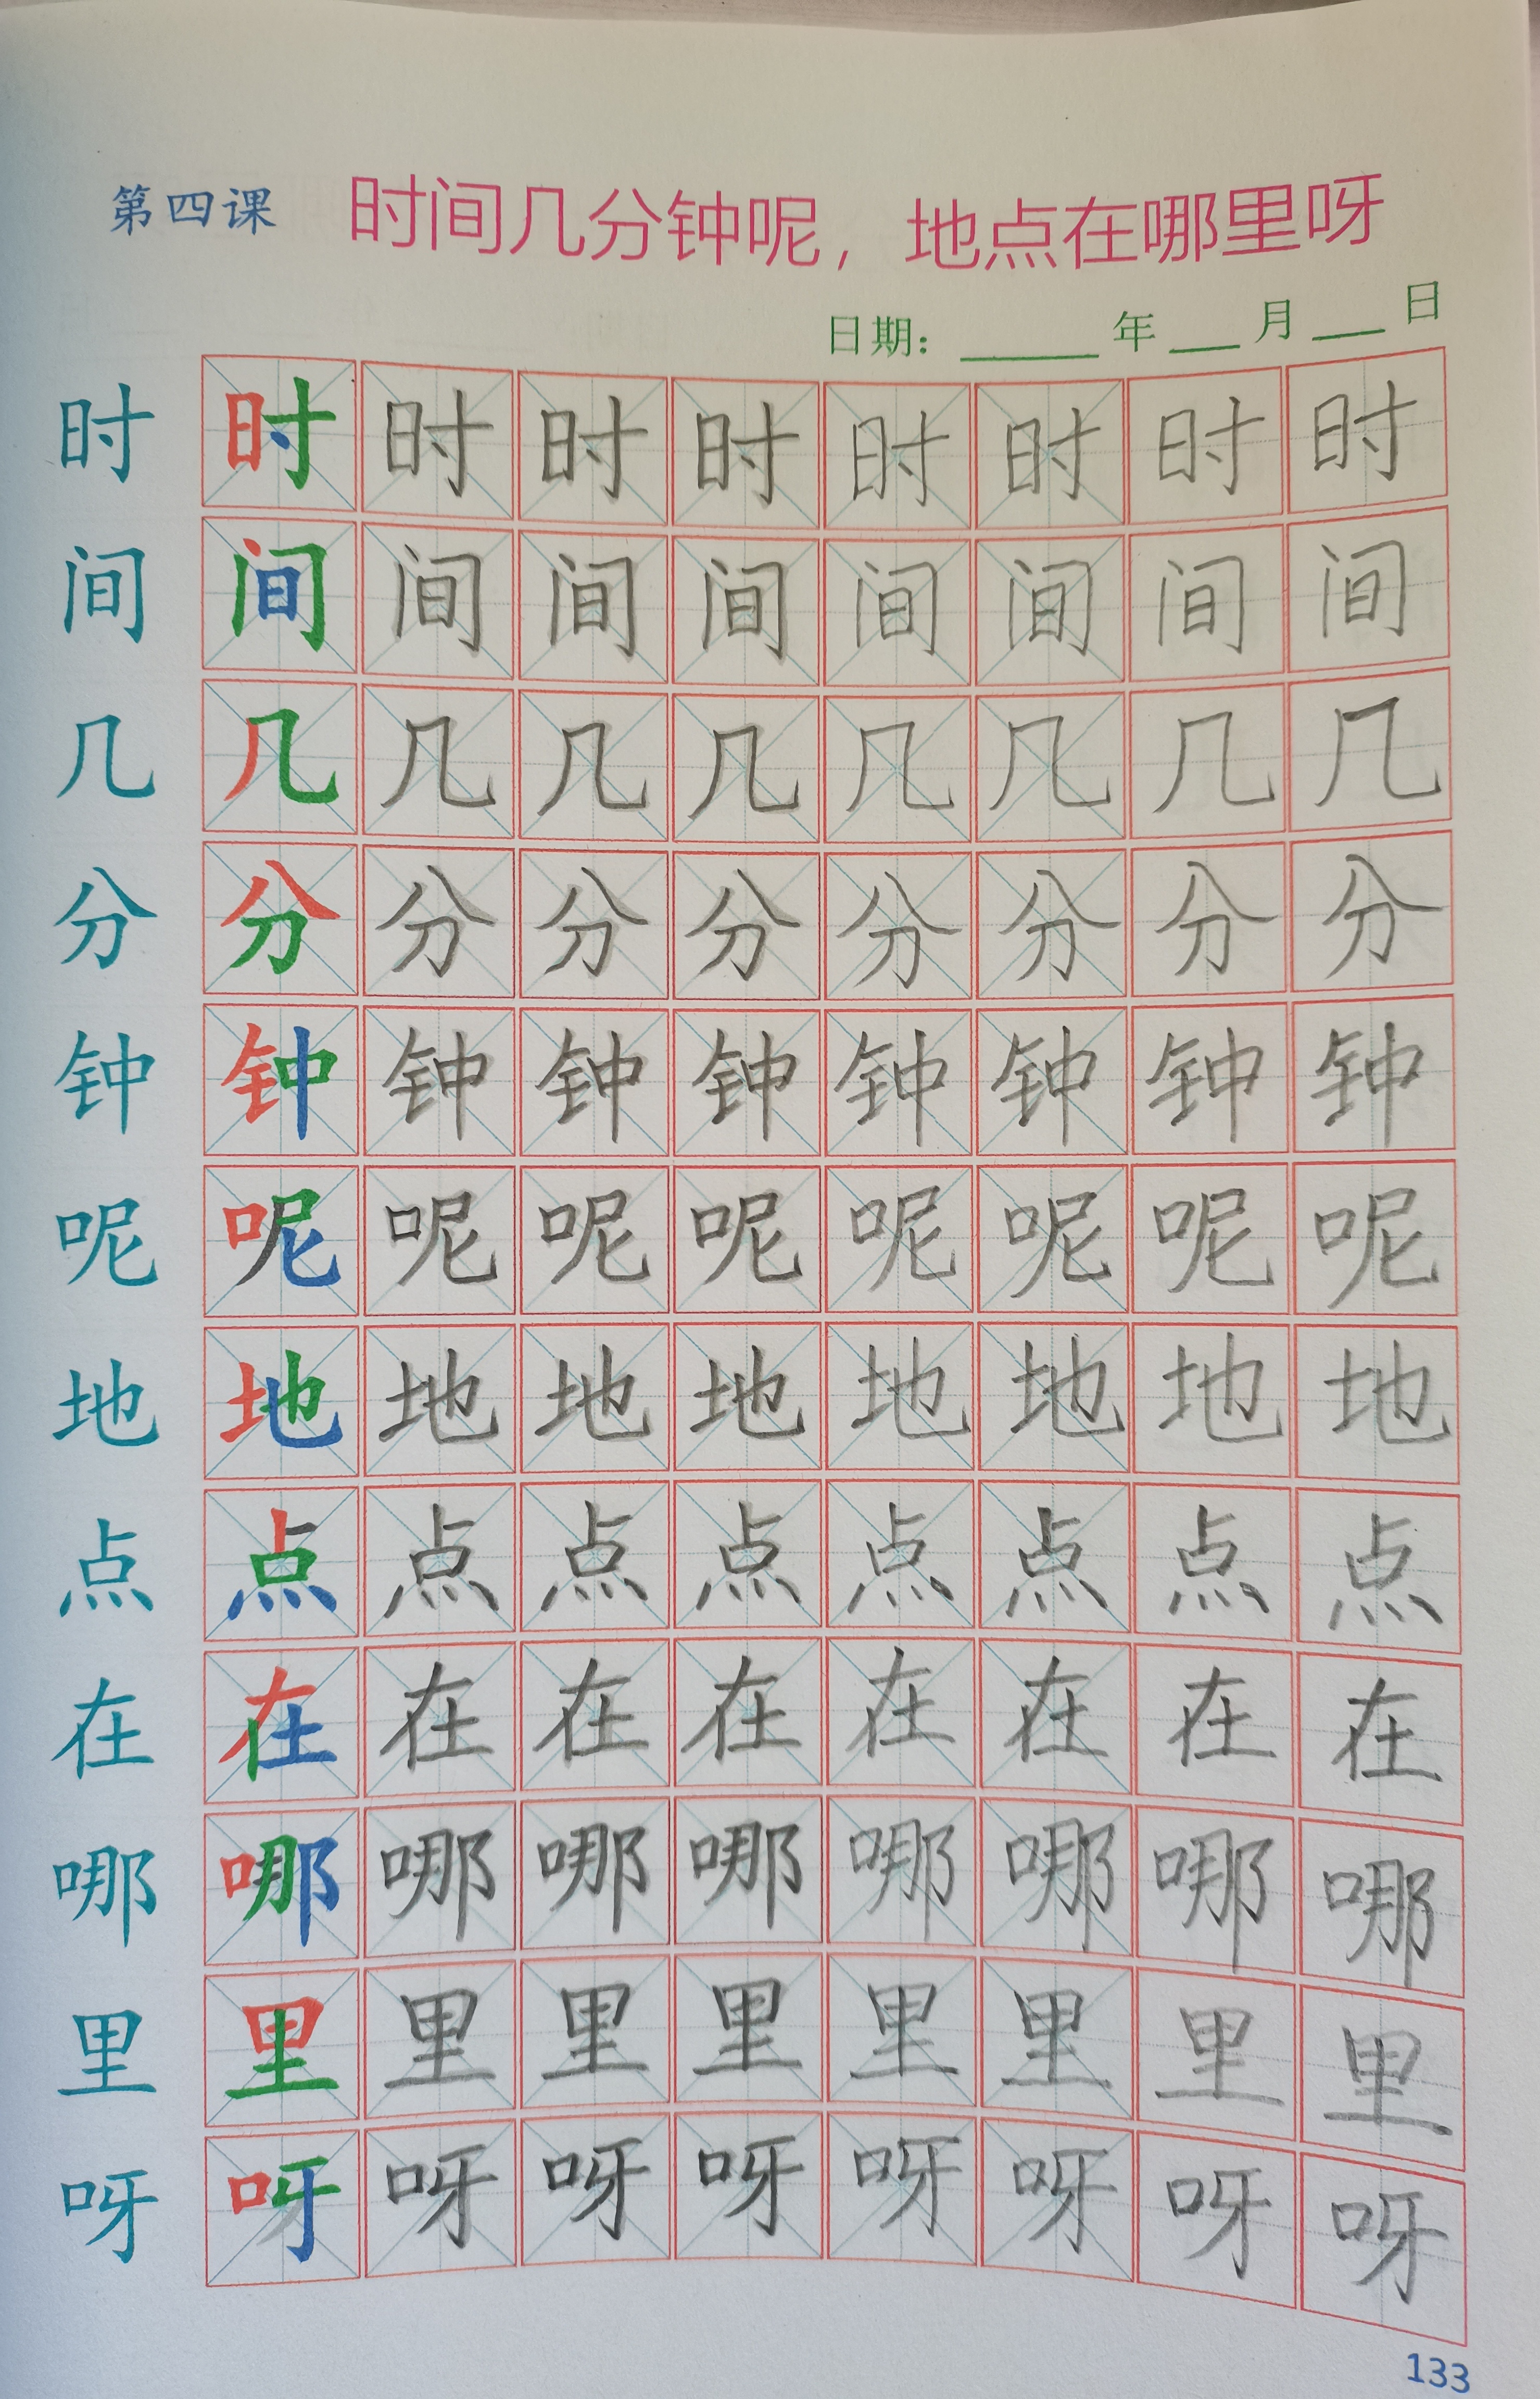 第四课 时间几分钟呢，地点在哪里呀
日期：______年___月___日
时 时 时 时 时 时 时 时 时
间 间 间 间 间 间 间 间 间
几 几 几 几 几 几 几 几 几
分 分 分 分 分 分 分 分 分
钟 钟 钟 钟 钟 钟 钟 钟 钟
呢 呢 呢 呢 呢 呢 呢 呢 呢
地 地 地 地 地 地 地 地 地
点 点 点 点 点 点 点 点 点
在 在 在 在 在 在 在 在 在
哪 哪 哪 哪 哪 哪 哪 哪 哪
里 里 里 里 里 里 里 里 里
呀 呀 呀 呀 呀 呀 呀 呀 呀
133